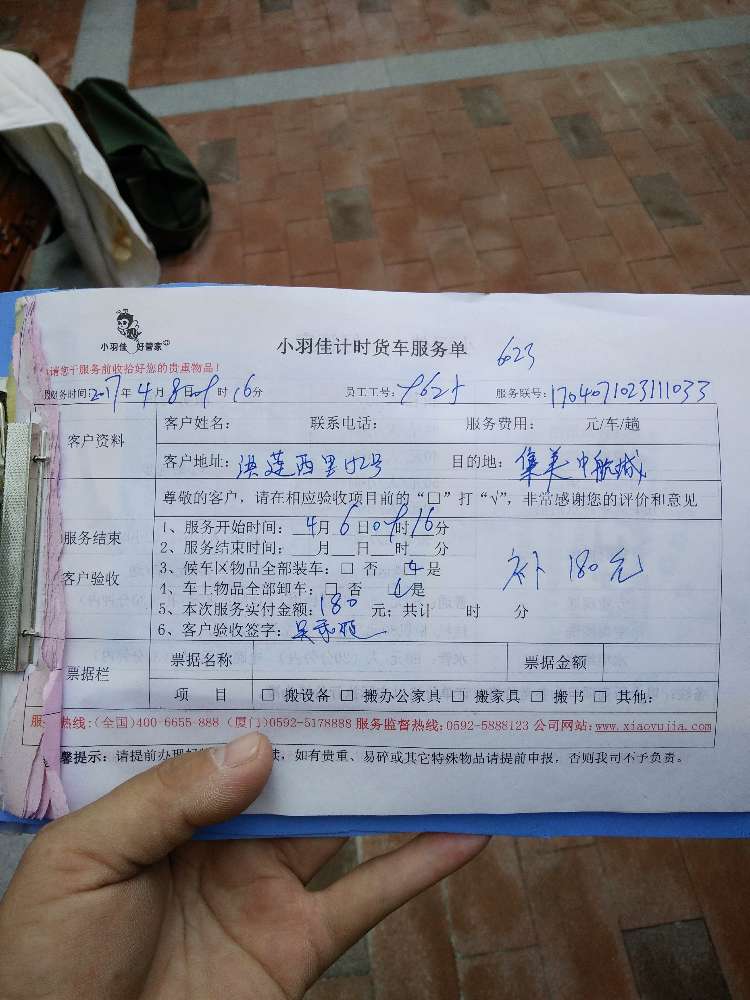 小羽佳 好管家
小羽佳计时货车服务单 623
请您于服务前收拾好您的贵重物品！
服务时间：2017年4月8日09时16分 员工工号：9625 服务联号：1704071023111033
客户资料
客户姓名： 联系电话： 服务费用： 元/车/趟
客户地址：洪莲西里 目的地：集美中航城
尊敬的客户，请在相应验收项目前的“□”打“√”，非常感谢您的评价和意见
服务结束
客户验收
1、服务开始时间：4月6日09时16分
2、服务结束时间： 月 日 时 分
3、候车区物品全部装车：□ 否 □是
4、车上物品全部卸车：□ 否 □是
补 180元
5、本次服务实付金额：180 元；共计 时 分
6、客户验收签字：
票据栏
票据名称 票据金额
项 目 □ 搬设备 □ 搬办公家具 □ 搬家具 □ 搬书 □ 其他：
服 热线：(全国)400-6655-888 (厦门)0592-5178888 服务监督热线：0592-5888123 公司网站：www.xiaoyujia.com
馨提示：请提前办理 ，如有贵重、易碎或其它特殊物品请提前申报，否则我司不予负责。